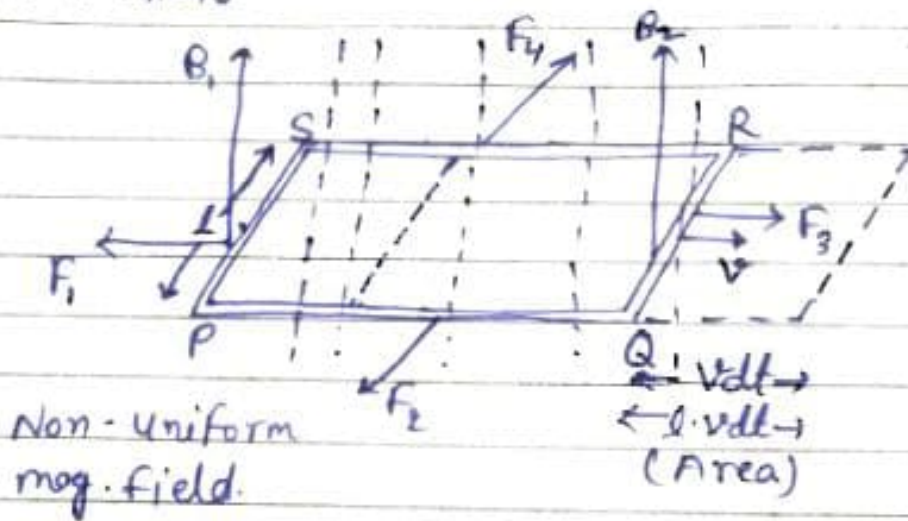 B₁
F₄
B₂
S
R
l
F₁
F₃
v
P
Q
F₂
Vdt
l.vdt
(Area)
Non-uniform
mag. field.